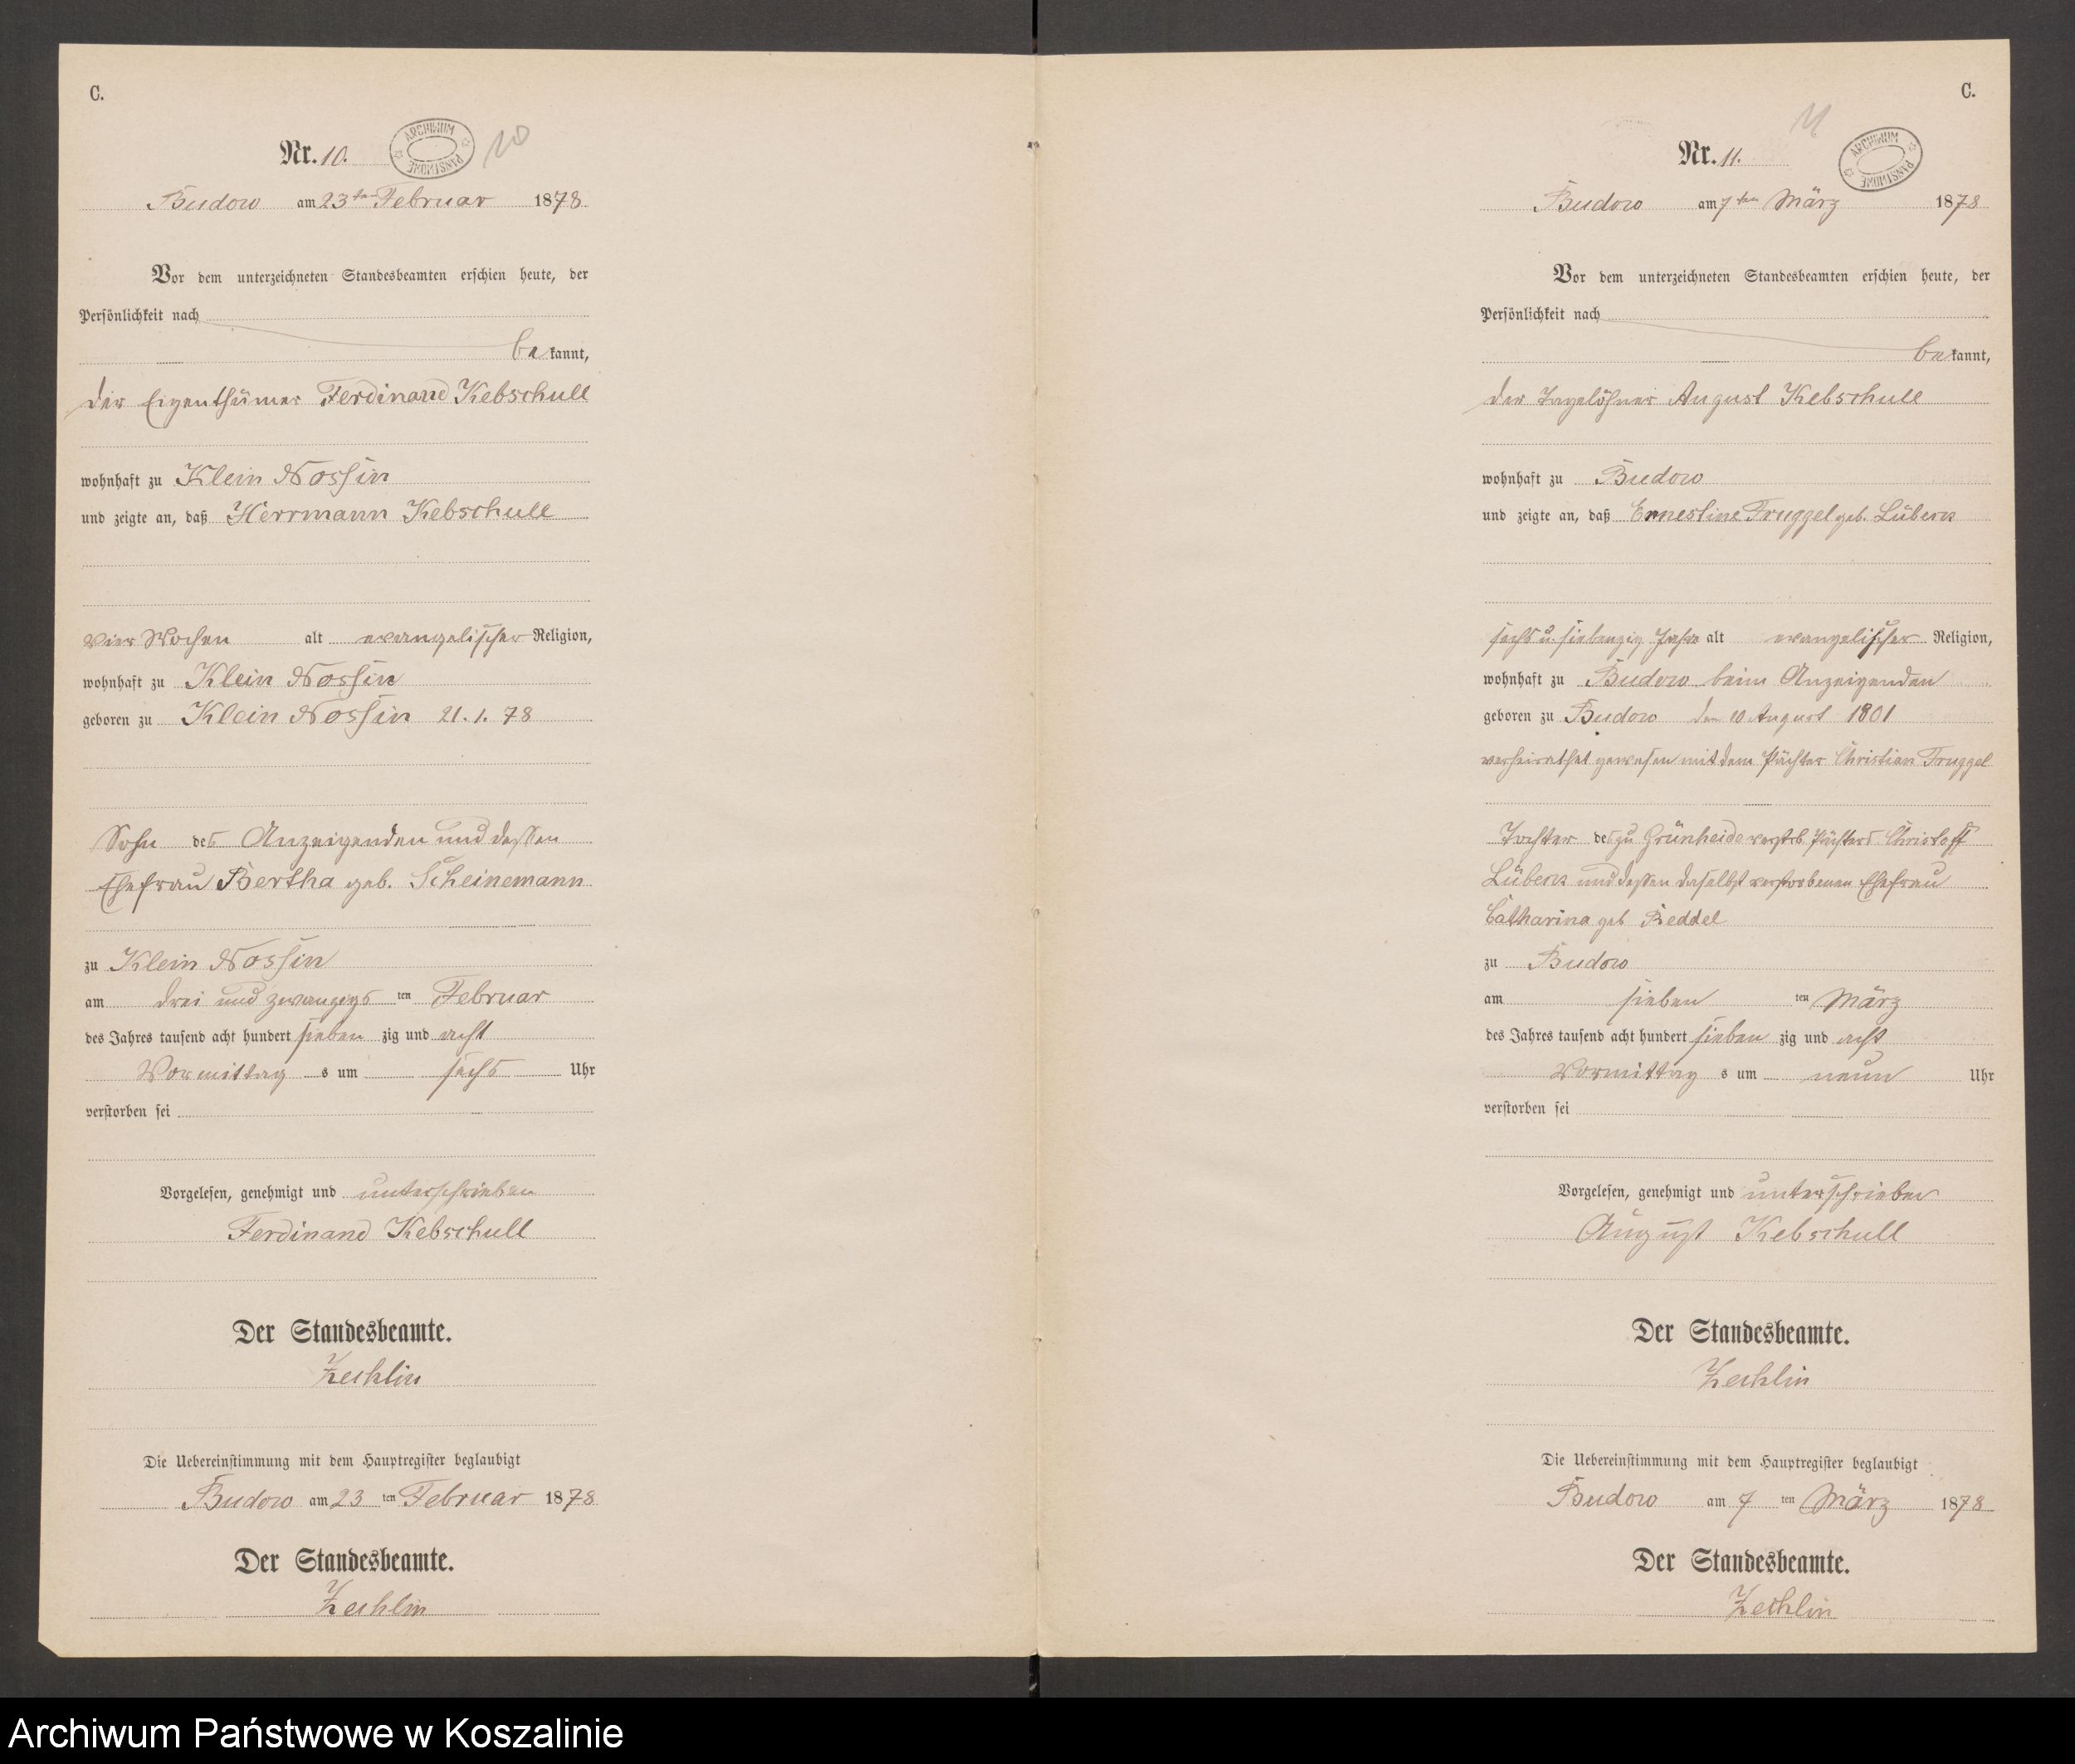 C.
Nr. 10.
ARCHIWUM PAŃSTWOWE
10
Budow am 23ten Februar 1878.
Vor dem unterzeichneten Standesbeamten erschien heute, der
Persönlichkeit nach
bekannt,
der Eigenthümer Ferdinand Kebschull
wohnhaft zu Klein Nossin
und zeigte an, daß Herrmann Kebschull
vier Wochen alt evangelischer Religion,
wohnhaft zu Klein Nossin
geboren zu Klein Nossin 21. 1. 78
Sohn des Anzeigenden und dessen
Ehefrau Bertha geb. Scheinemann
zu Klein Nossin
am drei und zwanzigs ten Februar
des Jahres tausend acht hundert sieben zig und acht
Vormittag s um sechs Uhr
verstorben sei
Vorgelesen, genehmigt und unterschrieben
Ferdinand Kebschull
Der Standesbeamte.
Zechlin
Die Uebereinstimmung mit dem Hauptregister beglaubigt
Budow am 23 ten Februar 1878
Der Standesbeamte.
Zechlin
C.
11
Nr. 11.
ARCHIWUM PAŃSTWOWE
Budow am 7ten März 1878
Vor dem unterzeichneten Standesbeamten erschien heute, der
Persönlichkeit nach
bekannt,
der Tagelöhner August Kebschull
wohnhaft zu Budow
und zeigte an, daß Ernestine Truggel geb. Lübeck
sechs u. siebenzig Jahre alt evangelischer Religion,
wohnhaft zu Budow beim Anzeigenden
geboren zu Budow den 10 August 1801
verheirathet gewesen mit dem Pächter Christian Truggel
Tochter des zu Grünheide verstb. Pächters Christoff
Lübeck und dessen daselbst verstorbenen Ehefrau
Catharina geb Reddel
zu Budow
am sieben ten März
des Jahres tausend acht hundert sieben zig und acht
Vormittag s um neun Uhr
verstorben sei
Vorgelesen, genehmigt und unterschrieben
August Kebschull
Der Standesbeamte.
Zechlin
Die Uebereinstimmung mit dem Hauptregister beglaubigt
Budow am 7 ten März 1878
Der Standesbeamte.
Zechlin
Archiwum Państwowe w Koszalinie